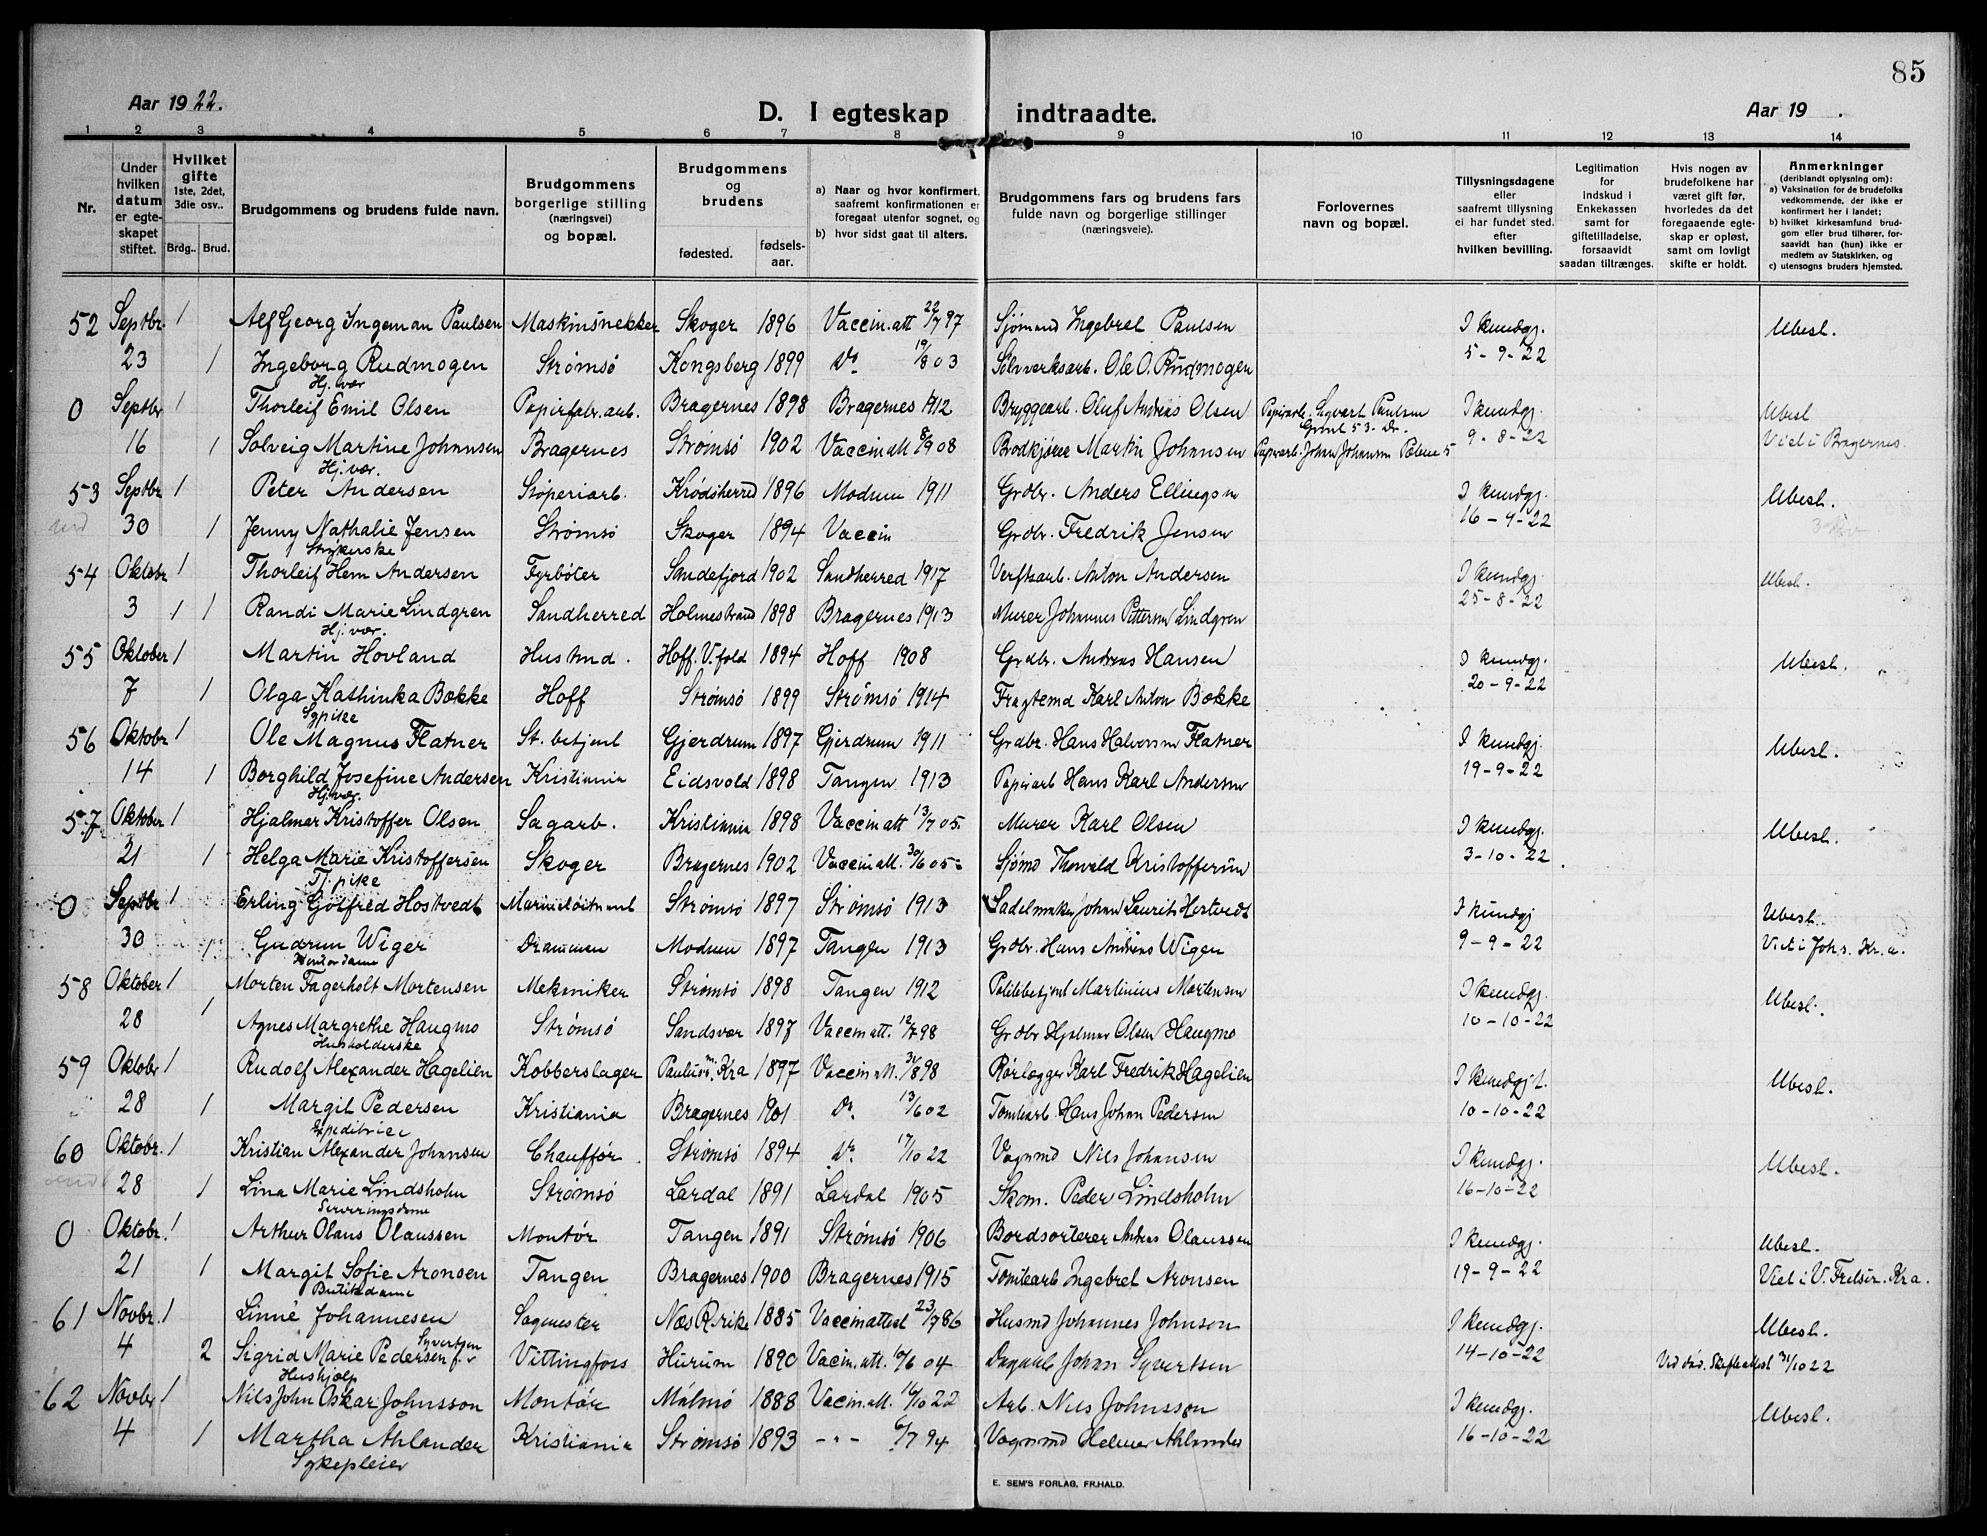 85
Aar 1922.
D. I egteskap indtraadte.
Aar 19 .
1 2 3 4 5 6 7 8 9 10 11 12 13 14
Nr.
Under hvilken datum er egteskapet stiftet.
Hvilket gifte 1ste, 2det, 3die osv..
Brdg.. Brud.
Brudgommens og brudens fulde navn.
Brudgommens borgerlige stilling (næringsvei) og bopæl.
Brudgommens og brudens
fødested. fødselsaar.
a) Naar og hvor konfirmert, saafremt konfirmationen er foregaat utenfor sognet, og
b) hvor sidst gaat til alters.
Brudgommens fars og brudens fars fulde navn og borgerlige stillinger (næringsveie).
Forlovernes navn og bopæl.
Tillysningsdagene eller saafremt tillysning ei har fundet sted, efter hvilken bevilling.
Legitimation for indskud i Enkekassen samt for giftetilladelse, forsaavidt saadan tiltrænges.
Hvis nogen av brudefolkene har været gift før, hvorledes da det foregaaende egteskap er opløst, samt om lovligt skifte er holdt.
Anmerkninger (deriblandt oplysning om):
a) Vaksination for de brudefolks vedkommende, der ikke er konfirmert her i landet;
b) hvilket kirkesamfund brudgom eller brud tilhører, forsaavidt han (hun) ikke er medlem av Statskirken, og
c) utensogns bruders hjemsted.
52 Septbr. 1 Alf Georg Ingeman Paulsen Maskinsnekker Skoger 1896 Vaccin.att 22/7 97 Sjømand Ingebret Paulsen I kundgj. Ubesl.
23 1 Ingeborg Rudmogen Strømsø Kongsberg 1899 Do 19/8 03 Sølvverksarb. Ole O. Rudmogen 5-9-22
Hj.vær
0 Septbr 1 Thorleif Emil Olsen Papirfabr.arb. Bragernes 1898 Bragernes 1912 Bryggearb. Oluf Andreas Olsen Papirarb. Sigvart Paulsen I kundgj. Ubesl
Grønl 53. Dr.
16 1 Solveig Martine Johannsen Bragernes Strømsø 1902 Vaccin att 8/9 08 Brødkjører Martin Johansen Papirarb. Johan Johansen 9-8-22 Viet i Bragernes.
Hj.vær.
53 Septbr 1 Peter Andersen Støperiarb. Krødsherred 1896 Modum 1911 Grdbr. Anders Ellingsen I kundgj. Ubesl.
30 1 Jenny Nathalie Jensen Strømsø Skoger 1894 Vaccin Grdbr. Fredrik Jensen 16-9-22
Strykerske
54 Oktobr 1 Thorleif Hem Andersen Fyrbøter Sandefjord 1902 Sandherred 1917 Verftsarb. Anton Andersen I kundgj. Ubesl.
3 1 1 Randi Marie Lindgren Sandherred Holmestrand 1898 Bragernes 1913 Murer Johannes Pettersen Lindgren 25-8-22
Hj.vær.
55 Oktober 1 Martin Hovland Hustmd. Hoff. V.fold 1894 Hoff 1908 Grdbr. Andreas Hansen I kundgj. Ubesl.
7 1 Olga Kathinka Bække Hoff Strømsø 1899 Strømsø 1914 Fragtemd Karl Anton Bække 20-9-22
Sypike
56 Oktobr 1 Ole Magnus Flatner St. betjent Gjerdrum 1897 Gjerdrum 1911 Grdbr. Hans Halvorsen Flatner I kundgj. Ubesl.
14 1 Borghild Josefine Andersen Kristiania Eidsvold 1898 Tangen 1913 Papirarb Hans Karl Andersen 19-9-22
Hj.vær.
57 Oktober 1 Hjalmar Kristoffer Olsen Sagarb. Kristiania 1898 Vaccin att 13/7 05. Murer Karl Olsen I kundgj. Ubesl.
21 1 Helga Marie Kristoffersen Skoger Bragernes 1902 Vaccin att. 30/6 05 Sjømd Thorvald Kristoffersen 3-10-22.
Tj.pike
0 Septbr 1 Erling Gotfred Hostvedt Marineløitnant Strømsø 1897 Strømsø 1913 Sadelmaker Johan Laurits Hostvedt I kundgj Ubesl.
30 1 Gudrun Wiger Drammen Modum 1897 Tangen 1913 Grdbr. Hans Andreas Wigen 9-9-22 Viet i Johs. Kr.a.
Kontordame
58 Oktober 1 Morten Fagerholt Mortensen Mekaniker Strømsø 1898 Tangen 1912 Politibetjent Martinius Mortensen I kundgj. Ubesl.
28 1 Agnes Margrethe Haugmo Strømsø Sandsvær 1897 Vaccin att. 12/7 98 Grdbr Hjalmar Olsen Haugmo 10-10-22
Husholderske
59 Oktobr 1 Rudolf Alexander Hagelien Kobberslager Paulus m. Kra 1897 Vaccin att. 31/8 98 Rørlægger Karl Fredrik Hagelien I kundgjt. Ubesl.
28 1 Margit Pedersen Kristiania Bragernes 1901 Do 13/6 02 Tomtearb. Hans Johan Pedersen 10-10-22
Expeditrice
60 Oktobr. 1 Kristian Alexander Johannsen Chauffør. Strømsø 1894 Do 17/10 22 Vognmd Nils Johansen I kundgj. Ubesl.
28 1 Lina Marie Lindsholm Strømsø Lardal 1891 Lardal 1905 Skom. Peder Lindsholm 16-10-22
Serveringsdame
0 Oktobr. 1 Arthur Olaus Olaussen Montør Tangen 1891 Strømsø 1906 Bordsorterer Andreas Olaussen I kundgj. Ubesl.
21 1 Margit Sofie Aronsen Tangen Bragernes 1900 Bragernes 1915 Tomtearb Ingebret Aronsen 19-9-22 Viet i V. Frelser. Kra.
Butikdame
61 Novbr. 1 Linné Johannesen Sagmester Næs R.rike 1885 Vaccinattest 23/7 86 Husmd Johannes Johnson I kundgj. Ubesl.
4 2 Sigrid Marie Pedersen f. Syvertsen Vittingfoss Hurum 1890 Vacin. att. 10/6 04 Johan Syvertsen 14-10-22 Ved død. Skifteattest 31/10 22
Hushjælp
62 Novbr 1 Nils John Oskar Johnsson Montør Malmø 1888 Vacin.att. 16/10 22 Arb. Nils Johnsson I kundgj. Ubesl.
4 1 Martha Åhlander Kristiania Strømsø 1893 -"- 6/7 94 Vognmd Helmer Ahlander 16-10-22
Sykepleier
E. SEM'S FORLAG, FR.HALD.